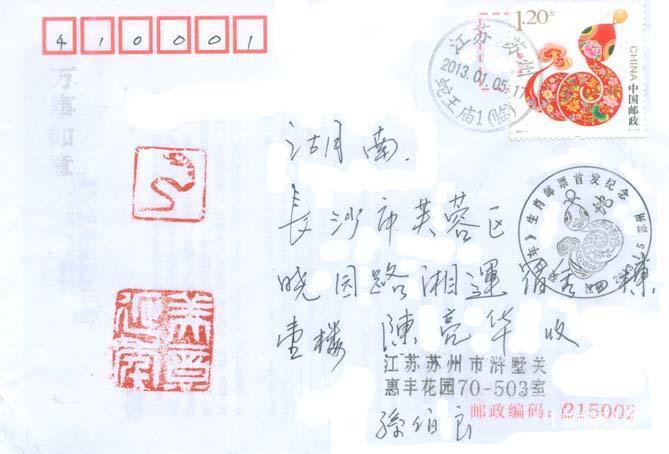 410001
1.20元
CHINA
中国邮政
江苏 苏州
2013.01.05.17
蛇王庙1(临)
生肖邮票首发纪念
万事如意
湖南.
长沙市芙蓉区
晓园路湘運
壹楼 陳亮华 收
江苏苏州市浒墅关
惠丰花园70-503室
邮政编码:215002
孫伯良